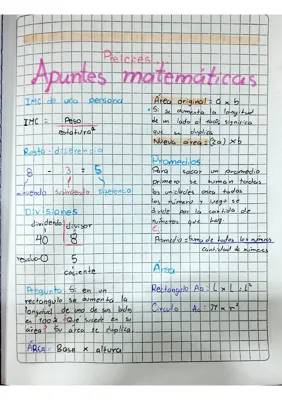 Apuntes matemáticas
IMC de una persona
IMC = Peso
estatura²
Resta - diferencia
8 - 3 = 5
minuendo sustraendo
Divisiones
dividendo divisor
40 8
residuo 0 5
cociente
Pregunta Si en un
rectangulo se aumenta la
longitud de uno de sus lados
en 100% ¿Que sucede en su
area? Su área se duplica.
ÁREA= Base x altura
Área original= a x b
Si se aumenta la longitud
de un lado al significa
que se duplica
Nueva área= (2a) x b
Promedios
Para sacar un promedio
primero se suman todos
los valores osea todos
los números y luego se
divide por la cantidad de
números que hay.
Promedio= suma de todos los números
cantidad de números
Área
Rectangulo A□ = L x L = L²
Circulo A○ = π x r²